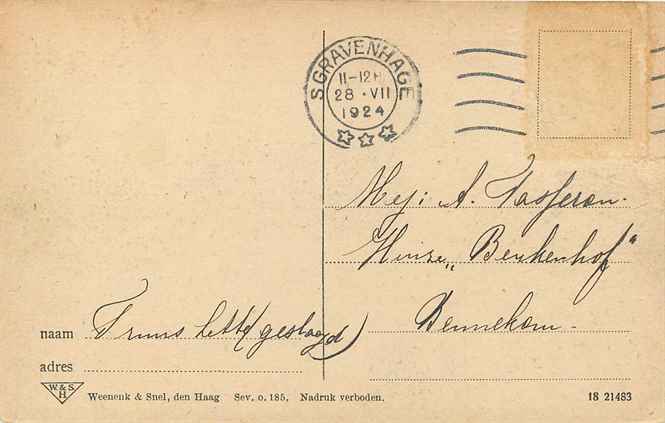 S GRAVENHAGE
11-12
28 · VII
1924
Mej: A.
Huize „Beukenhof"
Bennekom.
naam Truus (geslaagd)
adres
W. & S.
H
Weenenk & Snel, den Haag Sev. o. 185. Nadruk verboden.
18 21483